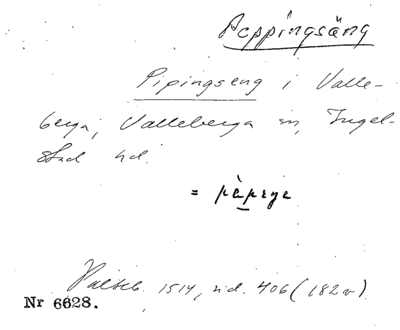 Peppingsäng
Pipingseng i Valle-
berga, Valleberga sn, Ingel-
stad hd.
= pèpıŋe
Palteb. 1514, sid. 406 (182v)
Nr 6628.